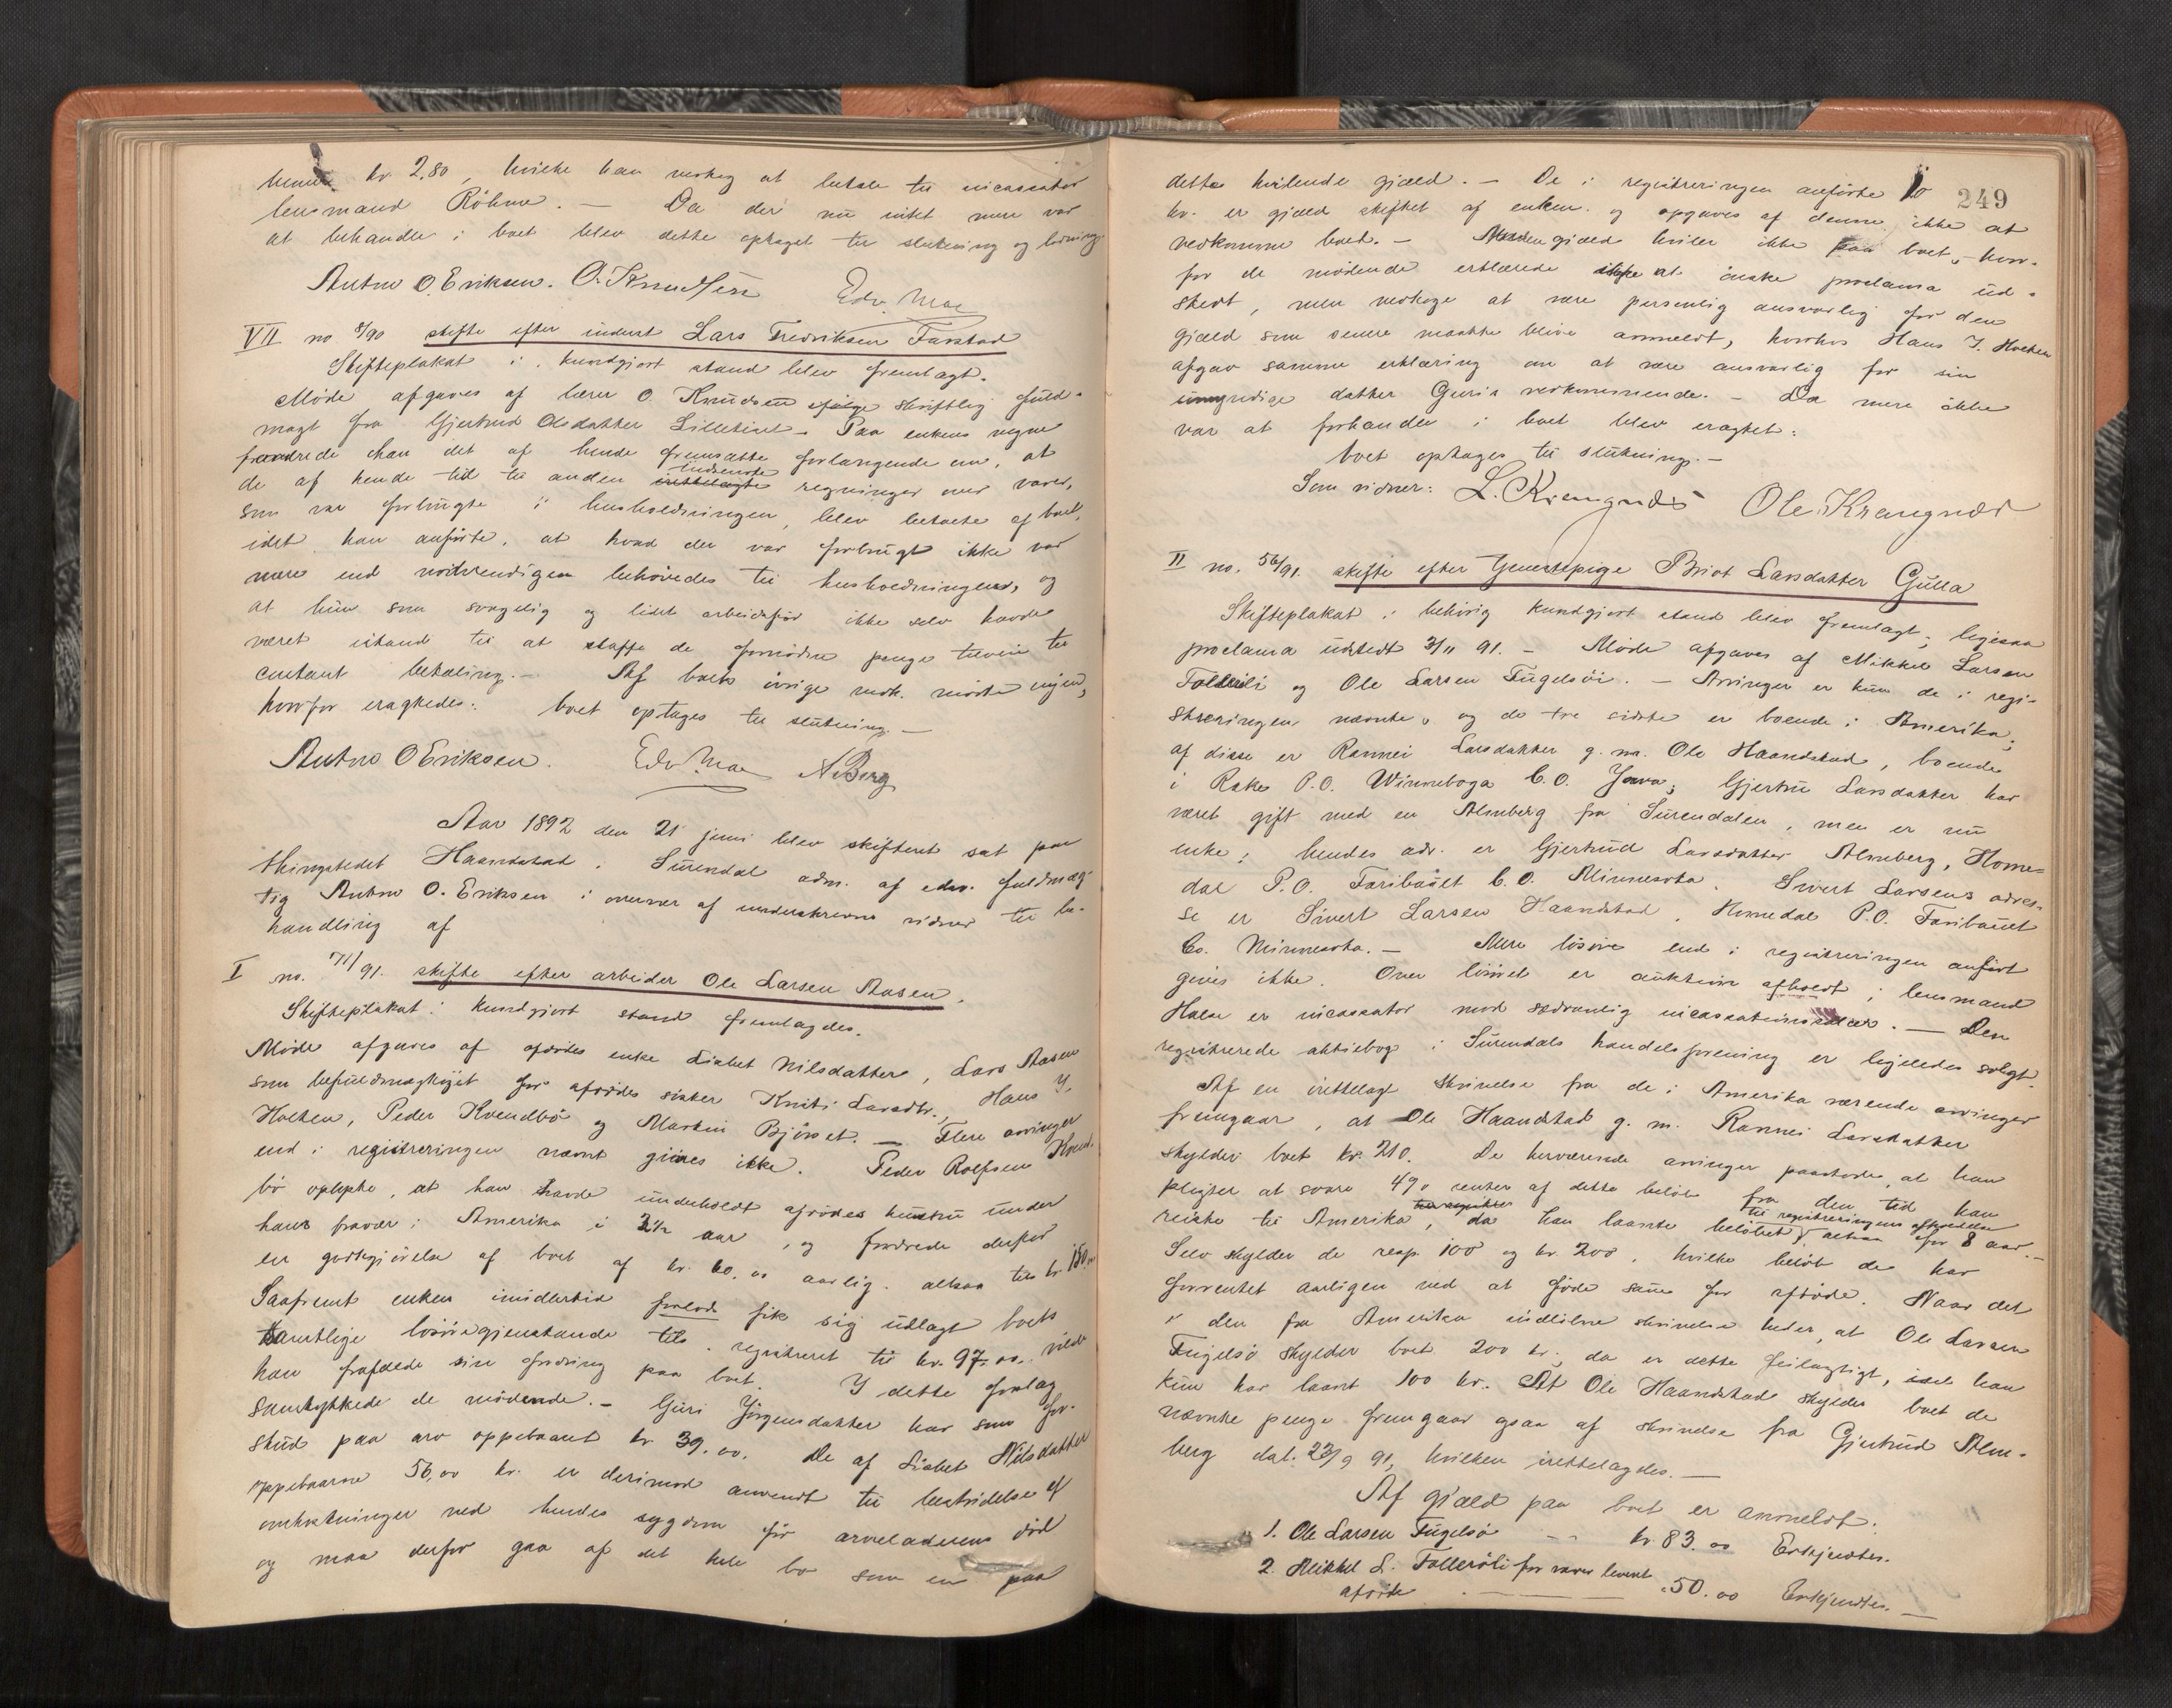 kr. 2,80, hvilke han vedtog at betale til incassator
lensmand Röhme. — Da der nu intet mere var
at behandle i boet blev dette optaget til slutning og lodning.
Anton O. Eriksen. O. Knudsen Edv. Moe
VII no. 8/90 skifte efter inderst Lars Fredriksen Farstad
Skifteplakat i kundgjort stand blev fremlagt.
Møde afgaves af lærer O. Knudsen ifølge skriftlig fuld-
magt fra Gjertrud Olsdatter Lilletiset. — Paa enkens vegne
fremdrede han det af hende fremsatte forlangende om, at
de af hende tid til anden indsendte regninger over varer,
som var forbrugte i husholdningen, blev betalte af boet,
idet han anførte, at hvad der var forbrugt ikke var
mere end nødvendigen behøvedes til husholdningen, og
at hun som svagelig og lidet arbeidsfør ikke selv havde
været istand til at skaffe de fornødne penge tilveie til
contant betaling. — Af boets øvrige vedk. mødte ingen,
hvorfor eragtedes: boet optages til slutning. —
Anton O Eriksen. Edv Moe A Berg
Aar 1892 den 21 juni blev skifteret sat paa
thingstedet Haandstad i Surendal adm. af edsv. fuldmæg-
tig Anton O. Eriksen i overvær af underskrevne vidner til be-
handling af
I no. 71/91. skifte efter arbeider Ole Larsen Aasen.
Skifteplakat i kundgjort stand fremlagdes.
Møde afgaves af afdødes enke Lisbet Nilsdatter, Lars Aasen
som befuldmægtiget for afdødes søster Knuti Larsdtr., Hans J.
Holten, Peder Kvendbø og Martin Bjørset. — Flere arvinger
end i registreringen nævnt gives ikke. Peder Rolfsen Kvend-
bø oplyste, at han havde underholdt afdødes hustru under
hans fravær i Amerika i 2½ aar, og fordrede derfor
en godtgjørelse af boet af kr. 60,00 aarlig. altsaa tils kr 150,00
Saafremt enken imidlertid forlod fik sig udlagt boets
samtlige løsøregjenstande tils. registreret til kr. 97.00. vilde
han frafalde sin fordring paa boet. I dette forslag
samtykkede de mødende. — Guri Jørgensdatter har som for-
skud paa arv oppebaaret kr 39.00. De af Lisbet Nilsdatter
oppebaarne 56,00 kr. er derimod anvendt til bestridelse af
omkostninger ved hendes sygdom før arveladerens død
og maa derfor gaa af det hele bo som en paa
249
dette hvilende gjæld. — De i registreringen anførte
kr. er gjæld stiftet af enken og opgaves af denne ikke at
vedkomme boet. — Anden gjæld hviler ikke paa boet, hvor-
for de mødende erklærede ikke at ønske proclama ud-
stedt, men vedtoge at være personlig ansvarlig for den
gjæld som senere maatte blive anmeldt, hvorhos Hans J. Holten
afgav samme erklæring om at være ansvarlig for sin
umyndige datter Guris vedkommende. — Da mere ikke
var at forhandle i boet blev eragtet:
boet optages til slutning. —
Som vidner: L. Krangnæs Ole Krangnæs
II no. 56/91. skifte efter tjenestepige Brit Larsdatter Gulla
Skifteplakat i behørig kundgjort stand blev fremlagt; ligesaa
proclama udstedt 3/11 91. — Møde afgaves af Mikkel Larsen
Follerøli og Ole Larsen Fugelsøi. — Arvinger er kun de i regi-
streringen nævnte, og de tre sidste er boende i Amerika;
af disse er Rannei Larsdatter g. m. Ole Haandstad, boende
i Rake P.O. Winneboga C.O. Jowa; Gjertru Larsdatter har
været gift med en Almberg fra Surendalen, men er nu
enke; hendes adr. er Gjertrud Larsdatter Almberg, Home-
dal P.O. Faribault C.O. Minnesota. Sivert Larsens adres-
se er Sivert Larsen Haandstad, Homedal P.O. Faribault
Co. Minnesota. — Mere løsøre end i registreringen anført
gives ikke. Over løsøret er auktion afholdt; lensmand
Halse er incassator mod sedvanlig incassationssalær. — Den
registrerede aktiebog i Surendals handelsforening er ligeledes solgt.
Af en irettelagt skrivelse fra de i Amerika værende arvinger
fremgaar, at Ole Haandstad g. m. Rannei Larsdatter
skylder boet kr. 210. De herværende arvinger paastode, at han
pligter at svare 4% renter af dette beløb fra den tid han
til registreringens afholdelse
reiste til Amerika, da han laante beløbet, altsaa for 8 aar. —
Selv skylder de resp. 100 og kr. 200, hvilke beløb de har
forrentet aarligen ved at føde sau for afdøde. Naar det
i den fra Amerika indløbne skrivelse heder, at Ole Larsen
Fugelsø skylder boet 200 kr., da er dette feilagtigt, idet han
kun har laant 100 kr. At Ole Haandstad skylder boet de
nævnte penge fremgaar ogsaa af skrivelse fra Gjertrud Alm-
berg dat. 23/9 91, hvilken irettelagdes. —
Af gjæld paa boet er anmeldt:
1. Ole Larsen Fugelsø — kr. 83.00 Erkjendtes.
2. Mikkel L. Follerøli for varer leveret
afdøde — " 50.00 Erkjendtes. —